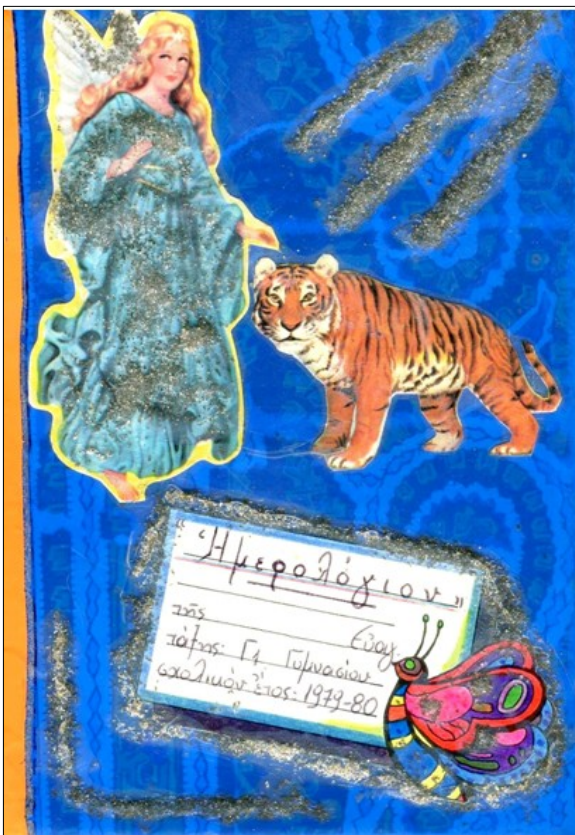 "Ἡμερολόγιον"
τῆς Εὐαγ.
τάξης: Γ1 Γυμνασίου
σχολικὸν ἔτος: 1979-80